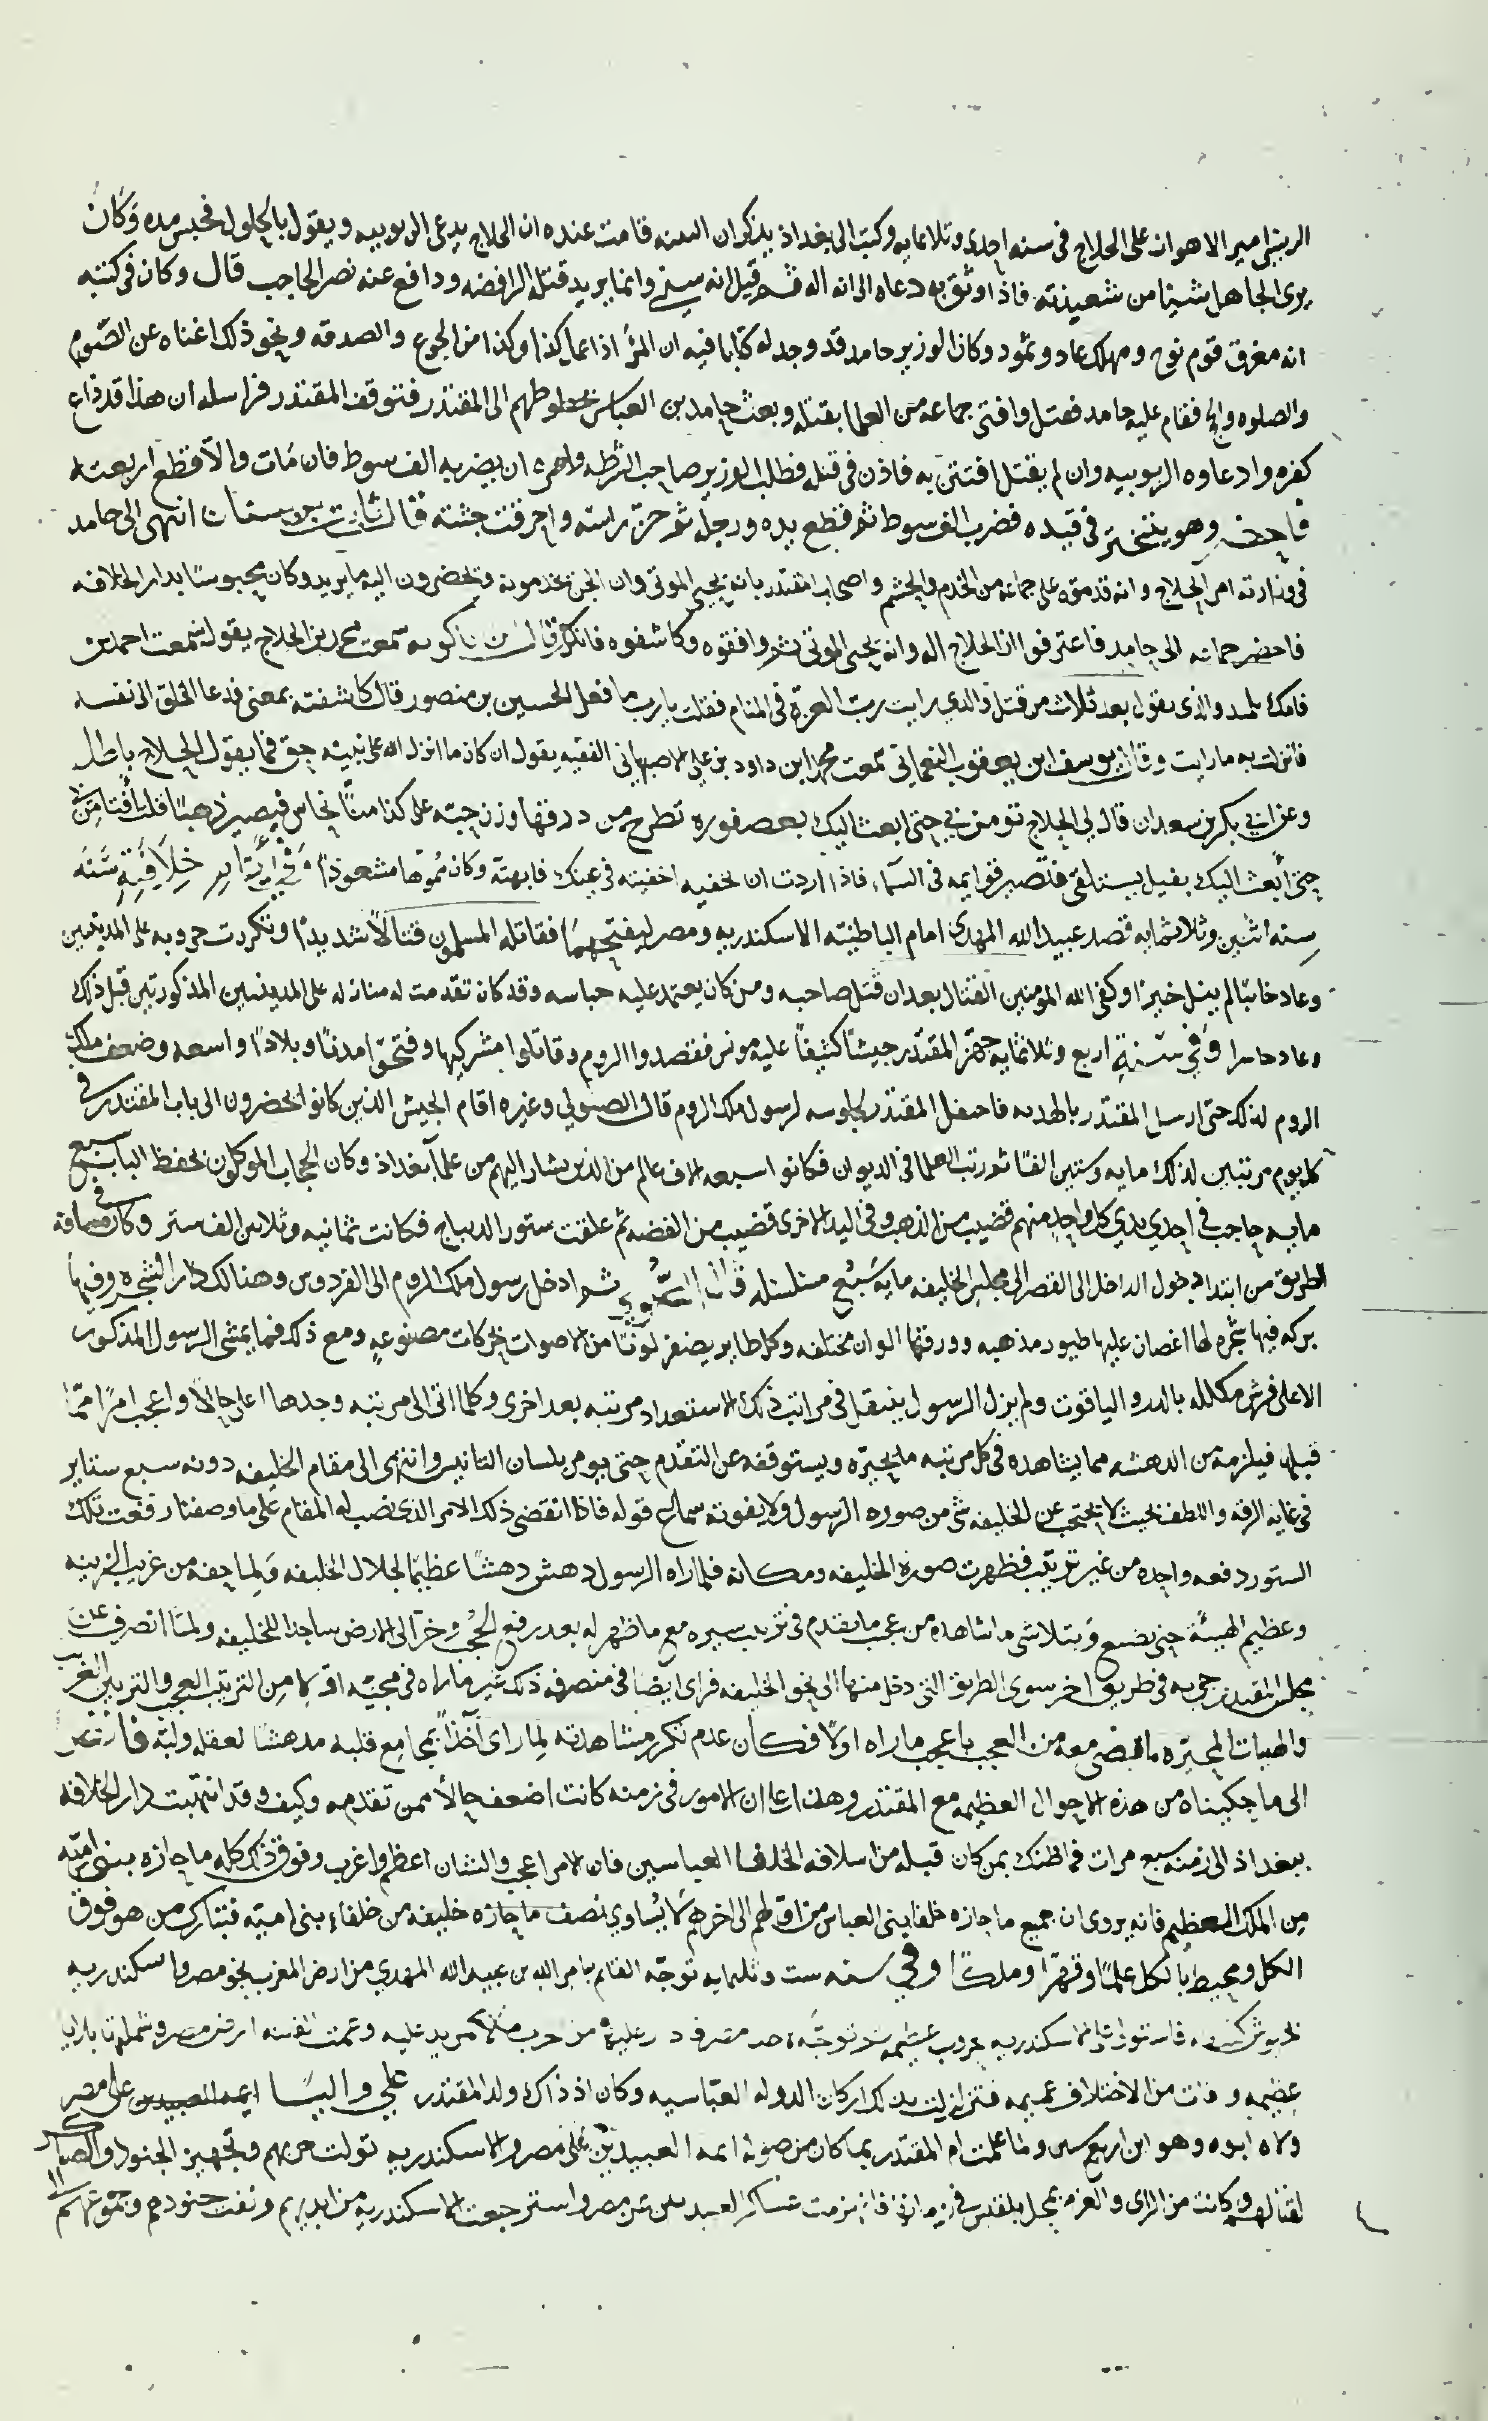 امير الاهواز على الحلاج في سنه احدى وثلاثمايه وكتب الى بغداد يذكر ان البينه قامت عنده ان الحلاج يدعى الربوبيه ويقول بالحلول فحبس مده وكان
يرى الجاهل شيئا من شعبذته فاذا وثق به دعاه الى انه اله ثم قيل انه سني وانما يريد قتله الرافضه ودافع عنه نصر الحاجب قال وكان في كتبه
انه مغرق قوم نوح ومهلك عاد وثمود وكان الوزير حامد قد وجد له كتابا فيه ان المرء اذا عمل كذا وكذا من الجوع والصدقه ونحو ذلك اغناه عن الصوم
والصلوه والحج فقام عليه حامد فقتل وافتى جماعه من العلما بقتله وبعث حامد بن العباس خطوطهم الى المقتدر فتوقف المقتدر فراسله ان هذا قد ذاع
كفره وادعاوه الربوبيه وان لم يقتل افتتن به فاذن في قتله فطلب الوزير صاحب الشرطه وامره ان يضربه الف سوط فان مات والا قطع اربعته
فاحضر وهو يتبختر في قيده فضرب الف سوط ثم قطع يده ورجله ثم حز راسه واحرقت جثته قال ثابت بن سنان انتهى الى حامد
في وزارته امر الحلاج وانه قد موه على جماعه من الخدم والحشم واصحاب المقتدر بانه يحيى الموتى وان الجن يخدمونه ويحضرون اليه ما يريد وكان محبوسا بدار الخلافه
فاحضر جماعه الى حامد فاعترفوا ان الحلاج اله وانه يحيى الموتى ثم وافقوه وكاشفوه فانكر قال بن باكويه سمعت حمد بن الحلاج يقول سمعت احمد بن
فاتك تلميد والدي يقول بعد ثلاث من قتل والدي رايت رب العزة في المنام فقلت يا رب ما فعل الحسين بن منصور قال كاشفته بمعنى فدعا الخلق الى نفسه
فانزلت به ما رايت وقال يوسف ابن يعقوب النعماني سمعت محمد ابن داود بن علي الاصبهاني الفقيه يقول ان كان ما انزل الله على نبيه حق فما يقول الحلاج باطل
وعن ابي بكر بن سعدان قال لي الحلاج تومن بي حتى ابعث اليك بعصفوره تطرح من ذرقها وزن حبه على كذا منا نحاس فيصير ذهبا قلت افتومن بي
حتى ابعث اليك بفيل يستلقى فتصير قوايمه في السماء فاذا اردت ان تخفيه اخفيته في عينك فابهته وكان مموها مشعوذا وفي ايام خلافته سنه
سنه اثنين وثلاثمايه قصد عبيد الله المهدي امام الباطنيه الاسكندريه ومصر ليفتحهما فقاتله المسلمون قتالا شديدا وتكررت حروبه على المدينتين
وعاد خائبا لم ينل خيرا وكفى الله المومنين القتال بعد ان قتل صاحبه ومن كان يعتمد عليه حباسه وقد كان تقدمت له منازله على المدينتين المذكورتين قبل ذلك
وعاد خاسرا وفي سنة اربع وثلاثمايه جهز المقتدر جيشا كثيفا عليه مونس فقصدوا الروم وقاتلوا مشركيها وفتحوا مدنا وبلادا واسعه وضعف ملك
الروم لذلك حتى ارسل المقتدر بالهديه فاحتفل المقتدر لجلوسه لرسول ملك الروم قال الصولي وغيره اقام الجيش الذين كانوا يحضرون الى باب المقتدر في
كل يوم مرتبين لذلك مايه وستين الفا ثم رتب العلما في الديوان فكانوا سبعه الاف عالم من الذين يشار اليهم من علما بغداد وكان الحجاب الموكلون بحفظ الباب سبع
مايه حاجب في احدى يدي كل واحد منهم قضيب من الذهب وفي اليد الاخرى قضيب من الفضه ثم علقت ستور الديباج فكانت ثمانيه وثلاثين الف ستر وكان في مسافه
الطريق من ابتداء دخول الداخل الى القصر الى مجلس الخليفه ماية سبع مسلسله قال الصولي ثم ادخل رسول ملك الروم الى الفردوس وهنالك دار الشجره وفيها
بركه فيها شجره لها اغصان عليها طيور مذهبه وورقها الوان مختلفه وكل طاير يصفر لونا من الاصوات بحركات مصنوعه ومع ذلك فما يمشى الرسول المذكور
الا على فرش مكلله بالدر والياقوت ولم يزل الرسول ينتقل في مراتب ذلك الاستعداد مرتبه بعد اخرى وكلما اتى الى مرتبه وجدها اعلى حالا واعجب امرا مما
قبلها فيلزمه من الدهشه مما يشاهده في كل مرتبه ما يحيره ويستوقفه عن التقدم حتى يومر بلسان التانيس وانتهى الى مقام الخليفه دونه سبع ستاير
في غايه الرقه واللطف بحيث لا يحتجب عن الخليفه شي من صوره الرسول ولا يفوته سماع قوله فاذا انقضى ذلك الامر الذي نصب له المقام على ما وصفنا رفعت تلك
الستور دفعه واحده من غير ترتيب فظهرت صورة الخليفه ومكانه فلما راه الرسول دهش دهشا عظيما لجلال الخليفه ولما حفه من غريب الزينه
وعظيم الهيئه حتى تضيع وتتلاشى ما شاهده من عجب ما تقدم في ترتيب سيره مع ما ظهر له بعد رفع الحجب وخر الى الارض ساجدا للخليفه ولما انصرف عن
مجلس المقتدر جي به في طريق اخر سوى الطريق التي دخل منها الى نحو الخليفه فراى ايضا في منصرفه ذلك غير ما راه في مجيه اولا من الترتيب العجب والتزيين الغريب
والهيات المحيره ما قضى معه من العجب باعجب ما راه اولا فكان عدم تكرر مشاهدته لما راى آخذا بمجامع قلبه مدهشا لعقله ولبه فانظر
الى ما حكيناه من هذه الاحوال العظيمه مع المقتدر وهذا على ان الامور في زمنه كانت اضعف حالا ممن تقدمه وكيف وقد انتهبت دار الخلافه
ببغداد الى زمنه سبع مرات فما ظنك بمن كان قبله من اسلافه الخلفا العباسين فان الامر اعجب والشان اعظم واغرب وفوق ذلك كله ما حازه بني اميه
من الملك العظيم فانه يروى ان جميع ما حازه خلفا بني العباس من اولهم الى اخرهم لا يساوي نصف ما حازه خليفه من خلفاء بني اميه فتبارك من هو فوق
الكل ومحيط بالكل علما وقهرا وملكا وفي سنه ست وثلمايه توجه القائم بامر الله بن عبيد الله المهدي من ارض المغرب نحو مصر واسكندريه
بجيوش كثيره فاستولى على الاسكندريه بحروب عظيمه ثم توجه من حرب ما لا مزيد عليه وعمت الفتنه ارض مصر وشملتها بلايا
عظيمه وفات من الاختلاف عميمه فتزلزلت بذلك اركان الدوله العباسيه وكان اذ ذاك ولد المقتدر على واليا ايمه العبيديين على مصر
ولاه ابوه وهو ابن اربع سنين ولما علمت ام المقتدر بما كان من صوله ايمه العبيديين على مصر والاسكندريه تولت حربهم وتجهيز الجنود والعساكر
لقتالهم وكانت من الراى والعزم بمحل بلقيس في زمانها فانهزمت عساكر العبيديين عن مصر واسترجعت الاسكندريه من ايديهم ونفت جنودهم وجموعهم